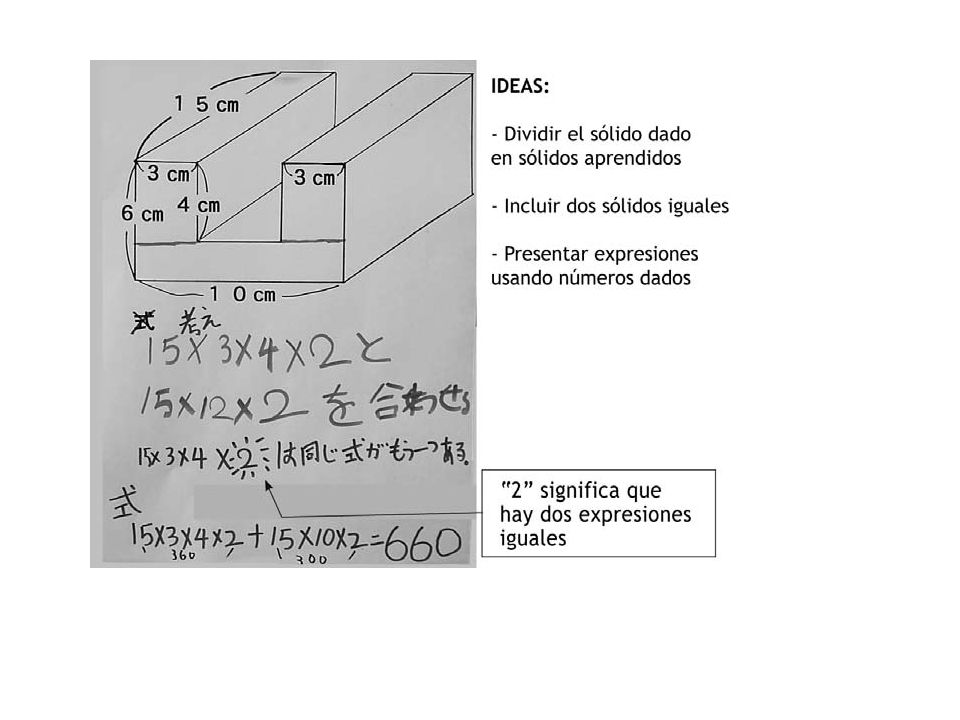 15 cm
3 cm
3 cm
6 cm
4 cm
10 cm
考え
15×3×4×2と
15×12×2を合わせる
15×3×4×2は同じ式がもう一つある。
式
15×3×4×2+15×10×2=660
360
300
IDEAS:
- Dividir el sólido dado
en sólidos aprendidos
- Incluir dos sólidos iguales
- Presentar expresiones
usando números dados
“2” significa que
hay dos expresiones
iguales